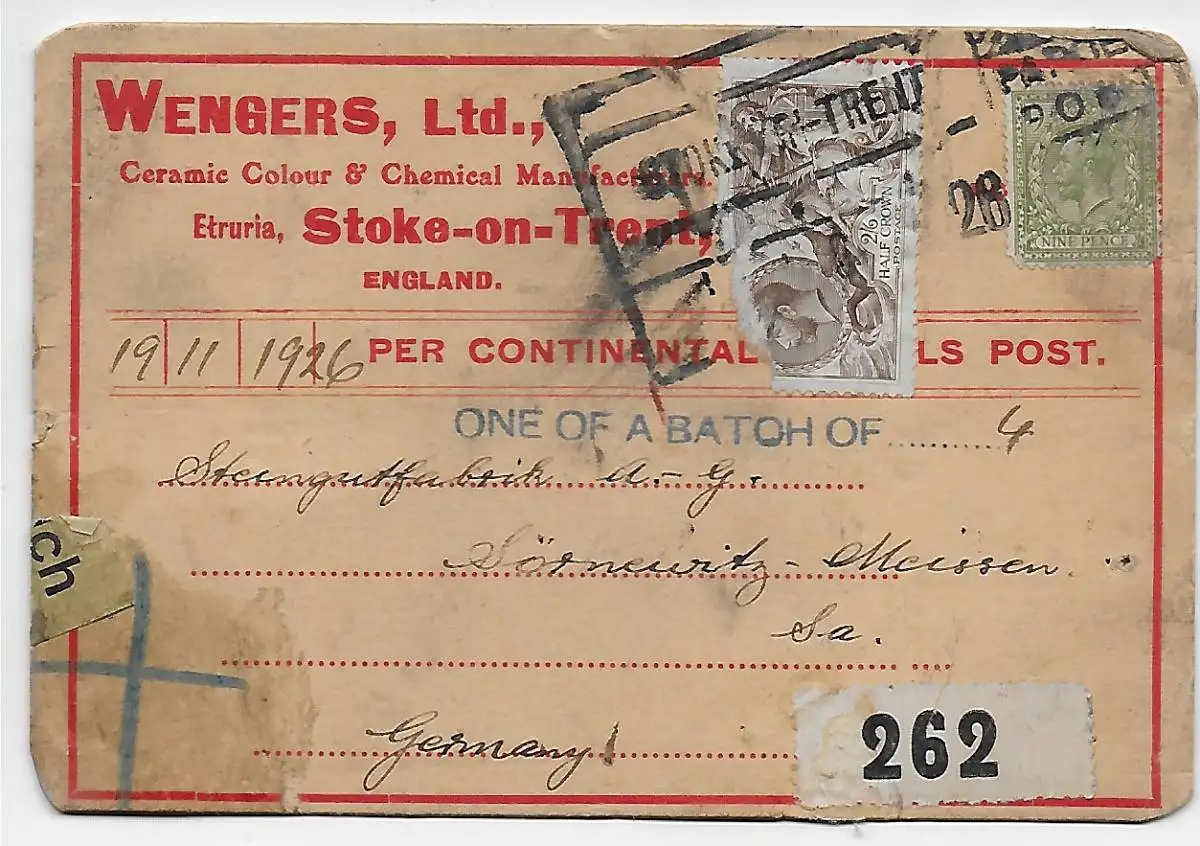 WENGERS, Ltd.,
Ceramic Colour & Chemical Manufacturers.
Etruria, Stoke-on-Trent,
ENGLAND.
STOKE-ON-TRENT
PARCEL
POST
28
HALF CROWN
2/6
POSTAGE
NINE PENCE
19 11 1926 PER CONTINENTAL LS POST.
ONE OF A BATCH OF ......... 4
Steingutfabrik A.-G.
Sörnewitz - Meissen.
Sa.
Germany
ch
262